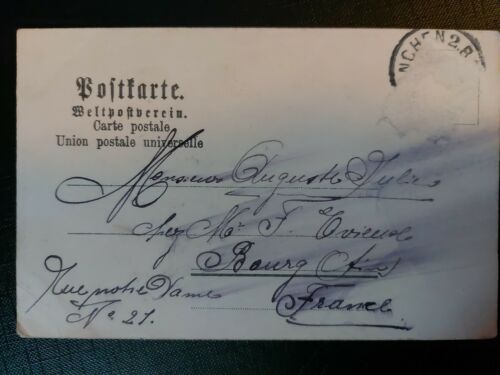 NCHEN 2.B.
Postkarte.
Weltpostverein.
Carte postale
Union postale universelle
Monsieur Auguste
chez Mr F.
Bourg (Ain)
Rue notre Dame
No 21.
France